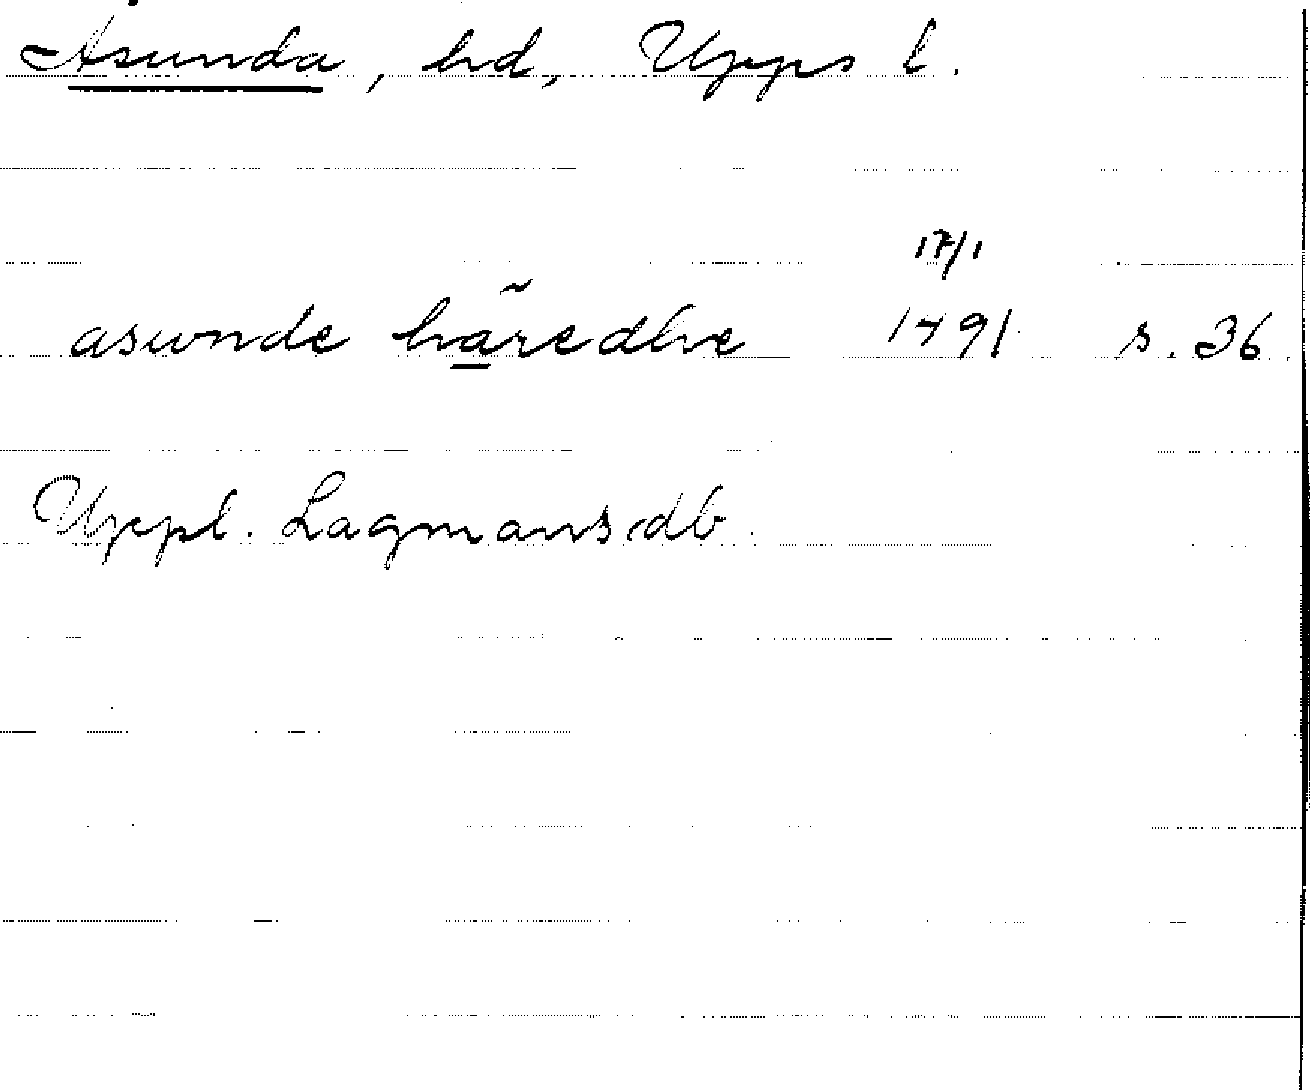 Asunda, hd, Upps l.
17/1
asunde häredhe 1491 s. 36
Uppl. Lagmansdb.